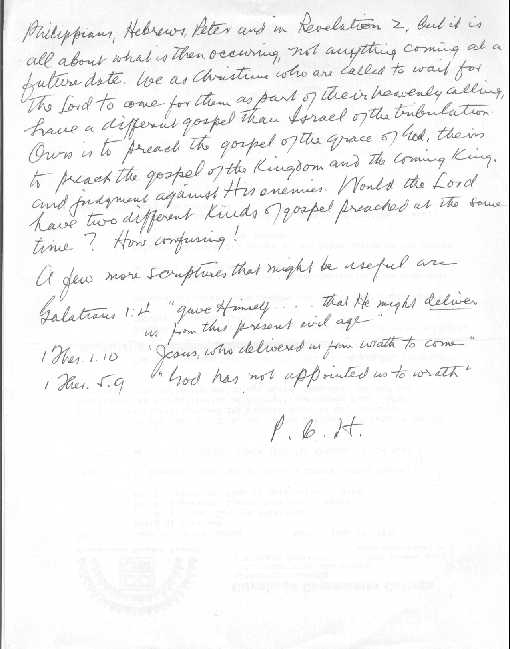 Philippians, Hebrews, Peter and in Revelation 2, but it is
all about what is then occuring, not anything coming at a
future date. We as Christians who are called to wait for
the Lord to come for them as part of their heavenly calling,
have a different gospel than Israel of the tribulation
Ours is to preach the gospel of the grace of God, theirs
to preach the gospel of the Kingdom and the coming King.
and judgment against His enemies. Would the Lord
have two different kinds of gospel preached at the same
time? How confusing!
A few more scriptures that might be useful are
Galatians 1:4 "gave Himself ... that He might deliver
us from this present evil age"
1 Thes 1.10 "Jesus, who delivered us from wrath to come"
1 Thes. 5.9 "God has not appointed us to wrath"
P. C. H.